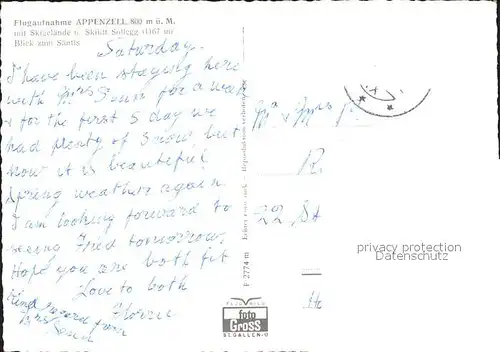 Flugaufnahme APPENZELL 800 m ü. M.
mit Skigelände u. Skilift Sollegg (1167 m)
Blick zum Säntis
Saturday.
I have been staying here
with Mrs for a week
& for the first 5 day we
had plenty of snow but
now it is beautiful
spring weather again.
I am looking forward to
seeing Fred tomorrow.
Hope you are both fit
Love to both
Kind regards from
Mrs
F 2774 m
Mr & Mrs
R.
22 St
privacy protection
Datenschutz
FLUGBILD
foto
GROSS
ST.GALLEN-O